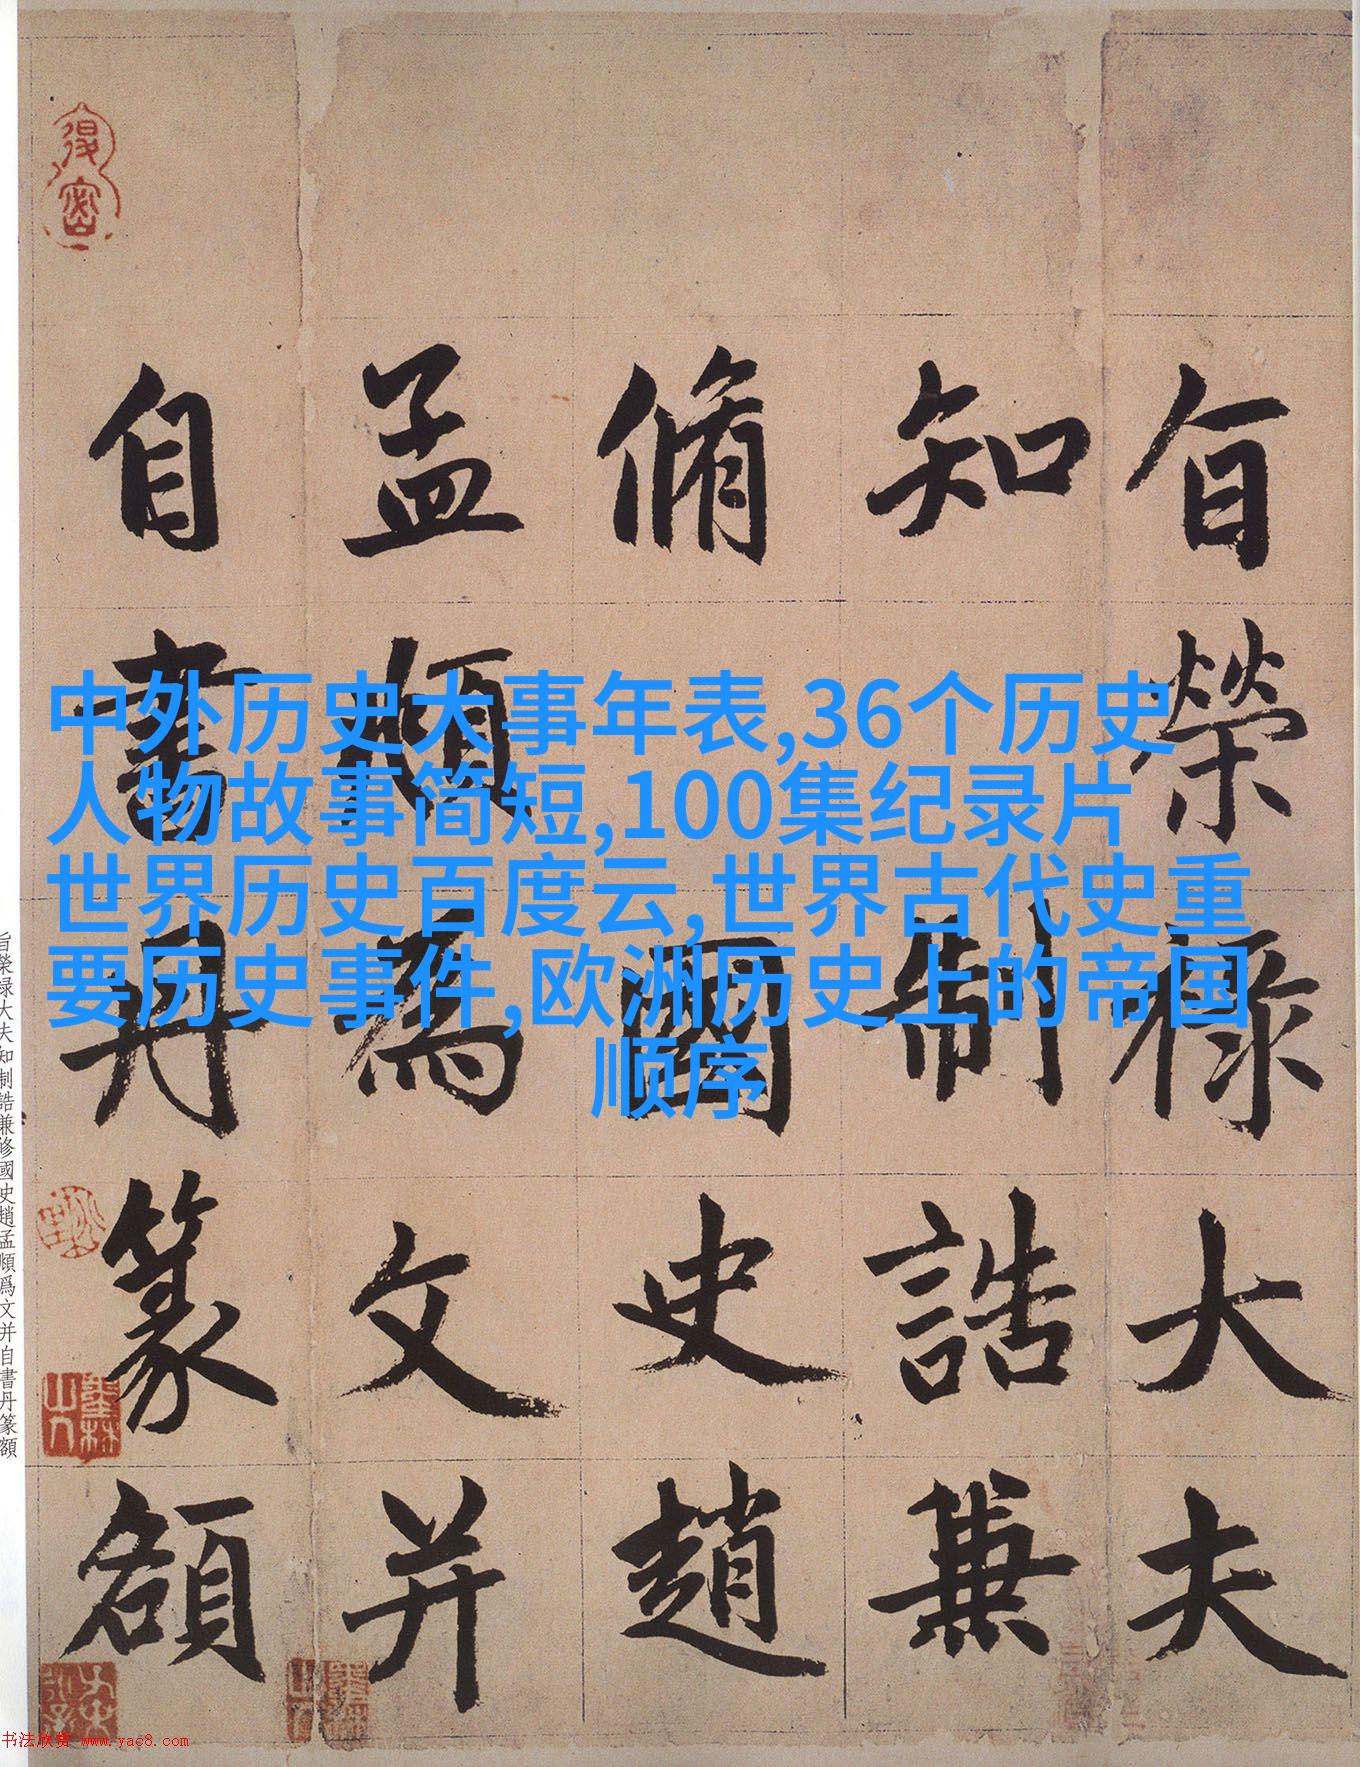 旨榮祿大夫
知制誥兼
脩國史趙
孟頫為文并
自書丹篆額
中外历史大事年表,36个历史
人物故事简短,100集纪录片
世界历史百度云,世界古代史重
要历史事件,欧洲历史上的帝国
顺序
旨榮祿大夫知制誥兼修國史趙孟頫爲文并自書丹篆額
书法欣赏 www.yac8.com